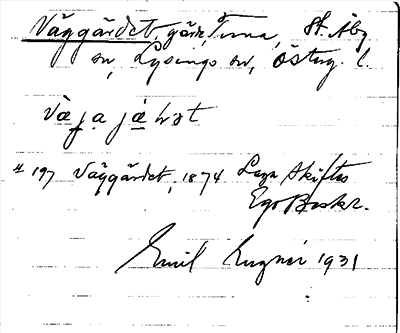 Väggärdet, gärde, Tuna, St. Åby
sn, Lysings hd, Östg. l.
№ 197 Väggärdet, 1874 Laga Skiftes
Ego Beskr.
Emil Lugner 1931